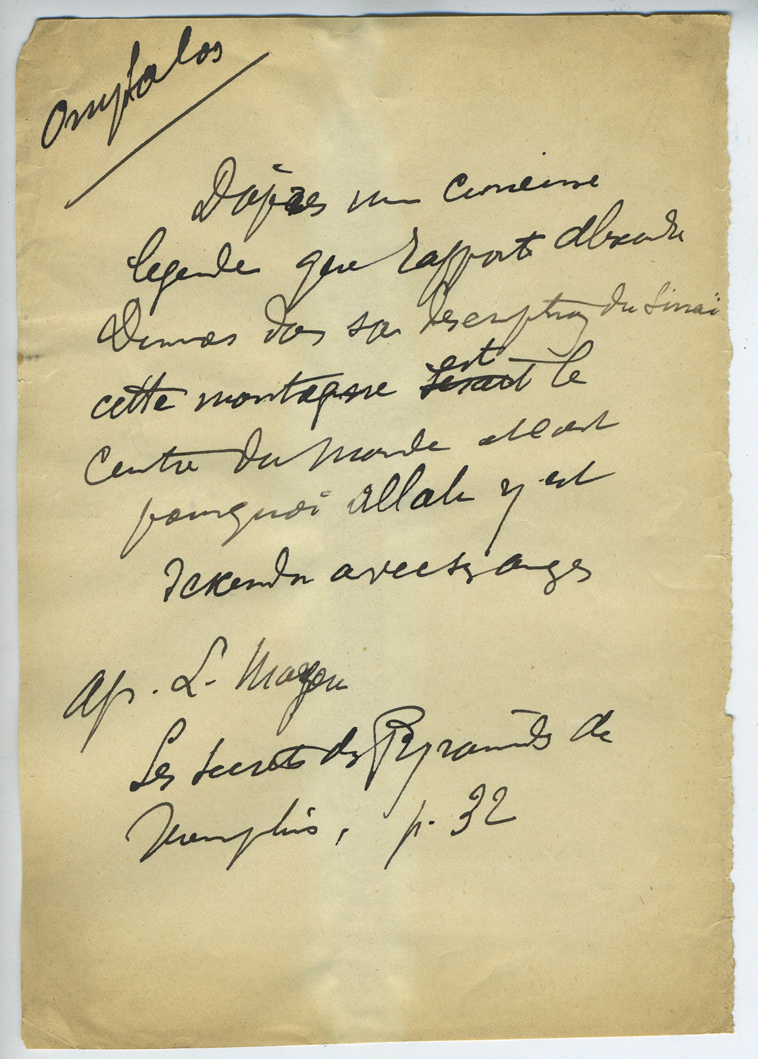 Omphalos
D'après une ancienne
légende que rapporte Alexandre
Dumas dans sa description du Sinai
cette montagne serait est le
Centre du Monde et c'est
pourquoi Allah y est
descendu avec ses anges
Ap. L. Mayou
Les Secrets des Pyramides de
Memphis, p. 32